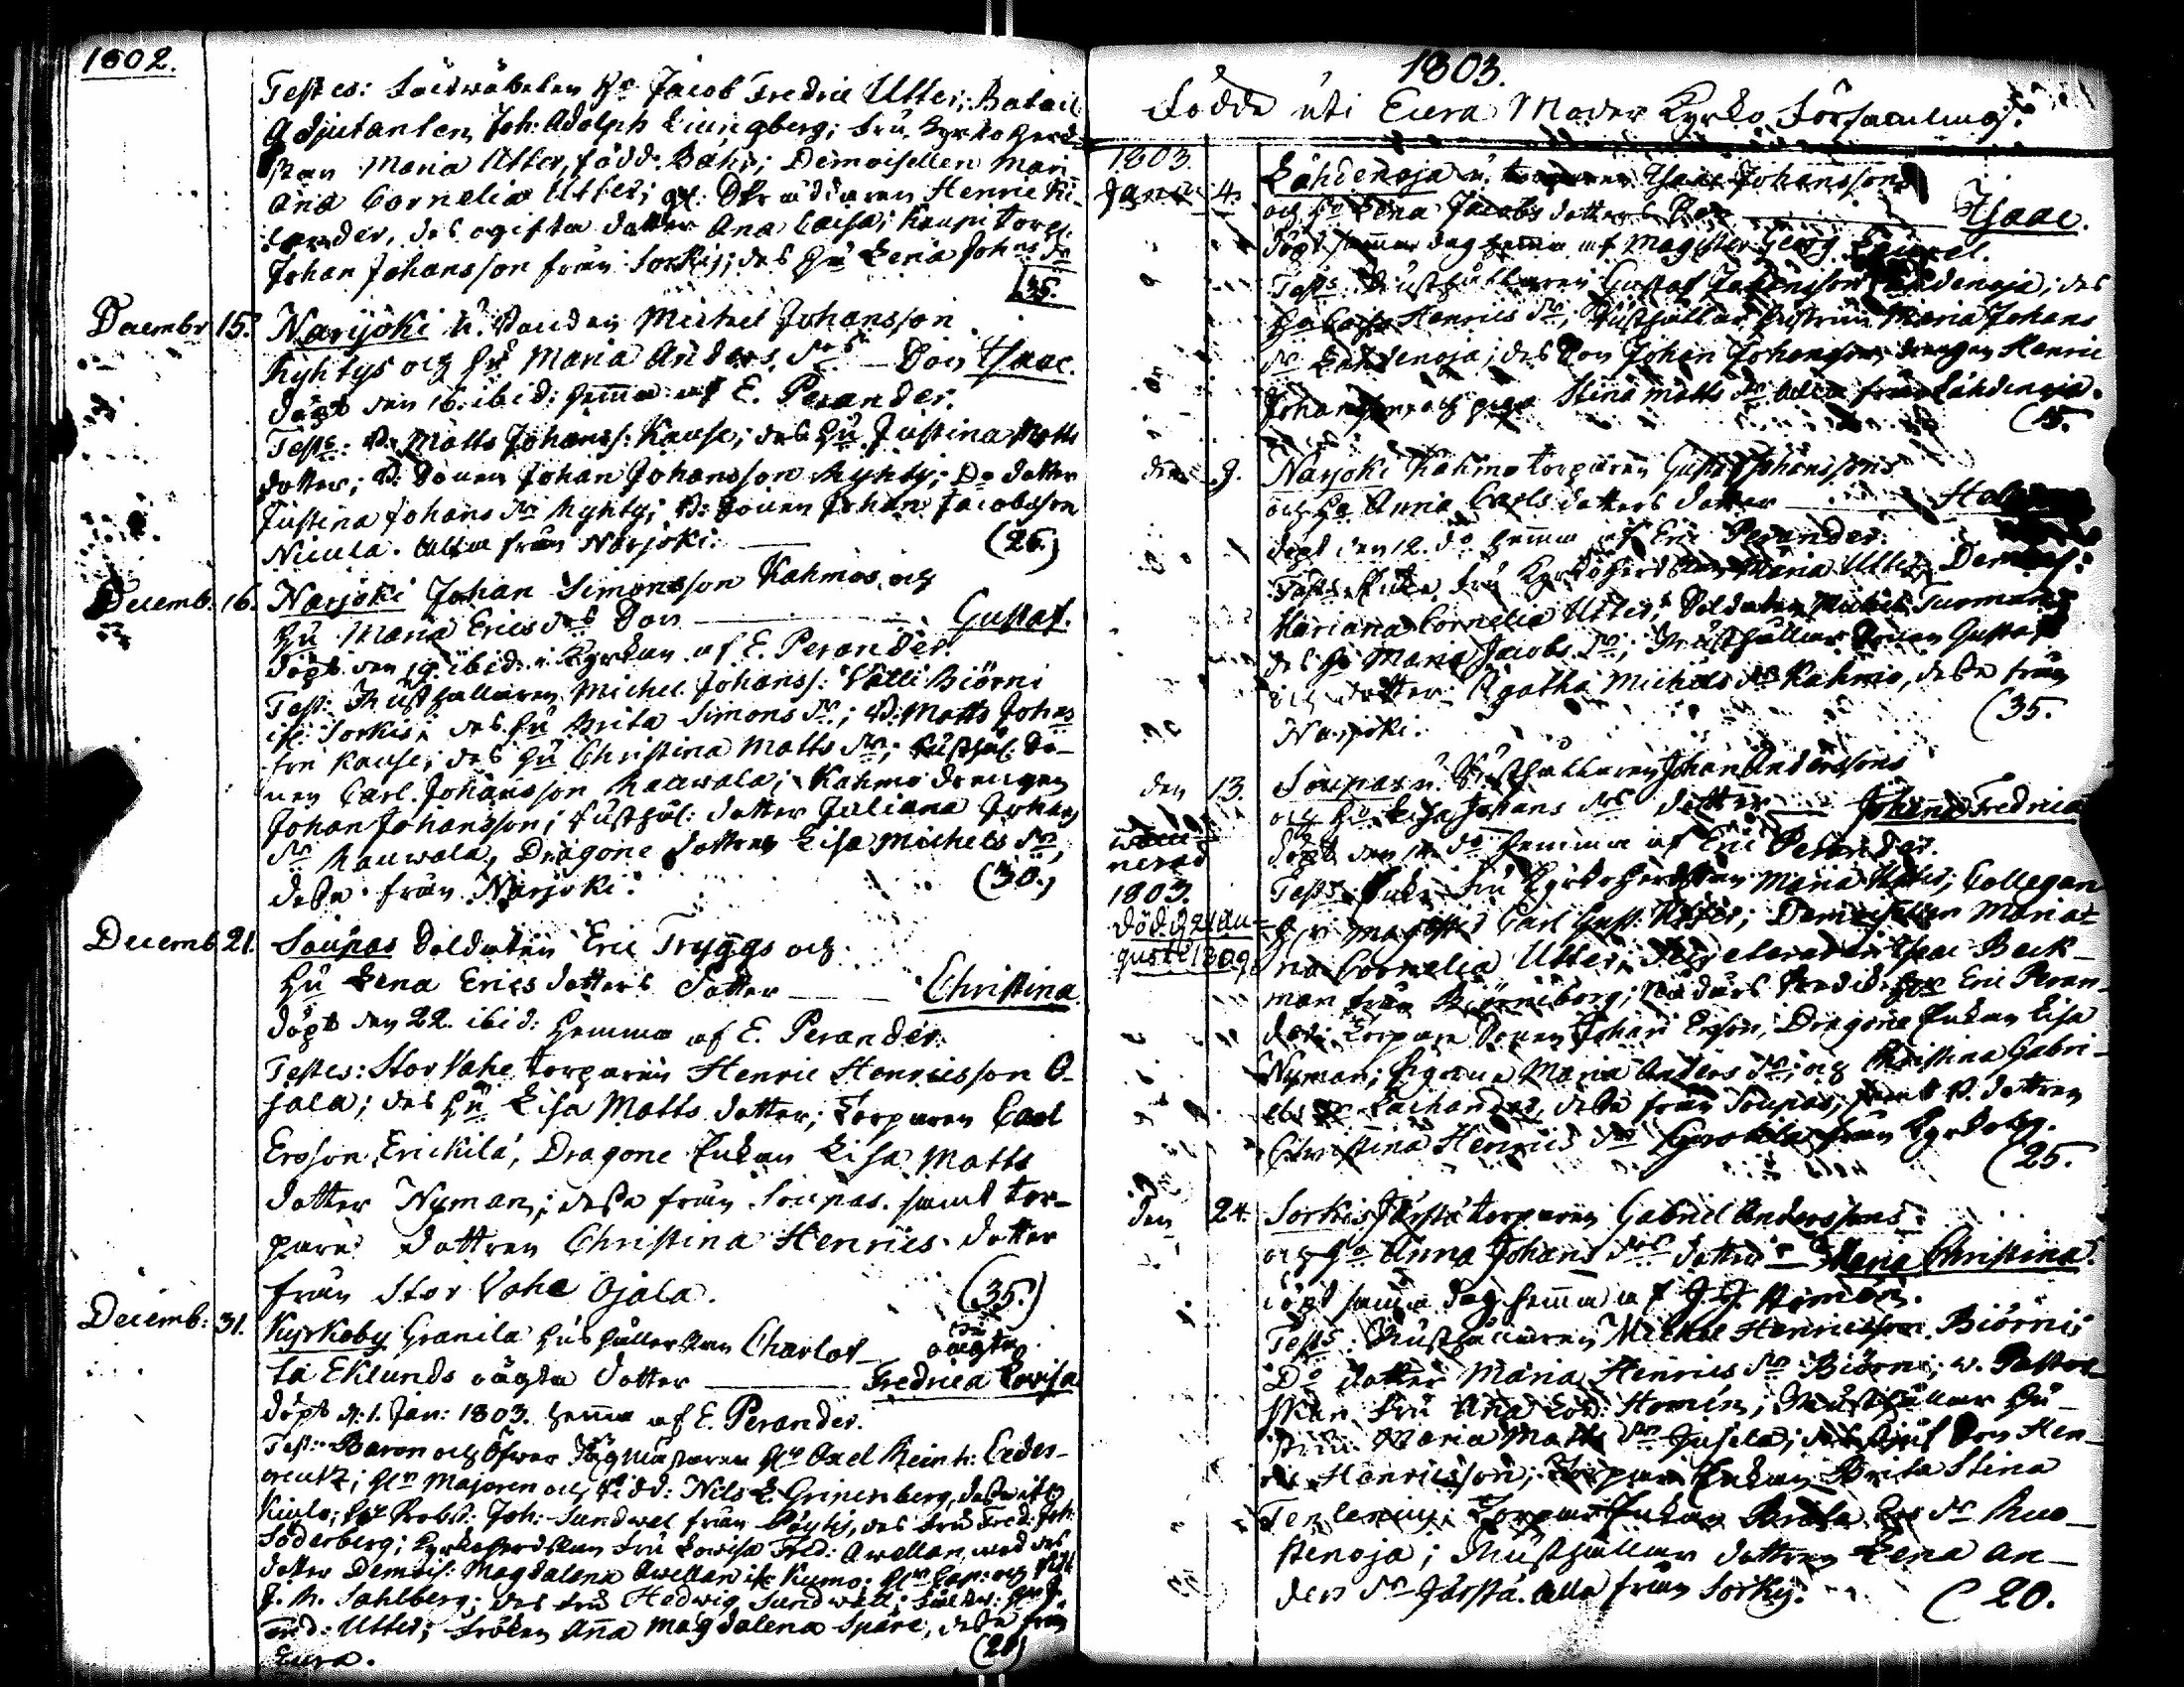 1802.
Testes: Fäldwäbelen Hr Jacob Fredric Utter; Batail
Adjutanten Joh: Adolph Liungberg; Fru Kyrkoherd
skan Maria Utter, född Bähr; Demoisellen Mari
ana Cornelia Utter;
des ogifta dotter Ana Caisa; Kaupi torp.
Johan Johansson från Sorkis; des Hu Lena Johns dr
(35.
Decembr 15. Narjoki Michel Johansson
Kyhtys och Hu Maria Anders drs Son Isaac.
döpt den 16. ibid: hemma af E. Perander.
Tests: Matts Johanss: Kause; des Hu Justina Matts
dotter; B: Sonen Johan Johansson Kyhty; Do dotter
Justina Johans dr Kyhty; B: Sonen Johan Jacobsson
Nicula. Alla från Narjoki. (25.)
Decemb. 16. Narjoki Johan Simonsson Kahmos och
Hu Maria Erics drs Son Gustaf.
döpt den 19 ibid: i Kyrkan af E. Perander.
Test: Rusthållaren Michel Johanss: Välli Biörni
ifr. Sorkis; des Hu Brita Simons dr; B: Matts Johns
son Kause; des Hu Christina Matts dr; Rusthål. So-
nen Carl Johansson Kauwala; Kahmo drengen
Johan Johansson; Rusthål: dotter Juliana Johans
dr Kauwala, Dragone dottren Lisa Michels dr,
desse från Narjoki. (30.)
Decemb 21. Soupas Soldaten Eric Tryggs och
Hu Lena Erics dotters dotter Christina
döpt den 22. ibid: hemma af E. Perander.
Testes: Stor Vahe torparen Henric Henricsson O-
jala; des Hu Lisa Matts dotter; Torparen Carl
Ersson Erickila, Dragone Enkan Lisa Matts
dotter Nyman; desse från Soupas. samt tor-
pare dottren Christina Henrics dotter
från Stor Vahe Ojala. (35.)
Decemb: 31. Kyrkoby Granila Hushållerskan Charlot-
ta Eklunds oägta dotter oägta Fredrica Lovisa
döpt d: 1. Jan: 1803. hemma af E. Perander.
Test: Baron och Öfwer Jägmästaren Hr Axel Reinh: Ceder-
creutz; Hr Majoren och Ridd: Nils L. Gripenberg, desse ifr.
Kiulo; Hr Probst: Joh: Sundwal från Pöytis, des Fru Fred: Joh:
Söderberg; Kyrkoherdskan Fru Lovisa Fred: Awellan med des
dotter Demois: Magdalena Awellan ifr Kumo; Hr Cap: och Ridd
J. M. Sahlberg; des Fru Hedwig Sundwall; Fältw: Hr J.
Fred: Utter; Fröken Anna Magdalena Spåre, desse från
Eura. (21)
1803.
Födde uti Eura Moder Kyrko Församling.
1803.
Janu: 4. Lähdenoja Isaac Johanssons
och Hu Lena Jacobs dotters Son Isaac.
döpt samma dag hemma af Magister Georg
Tests: Rusthållaren Gustaf Johansson Lähdenoja; des
Hu Caisa Henrics dr; Rusthållar Hustrun Maria Johans
dr Lähdenoja; des Son Johan Johansson, drengen Henric
Johansson och piga Stina Matts dr alla från Lähdenoja.
(35.
den 9. Narjoki Kahmo torparen Gustaf Johanssons
och Hu Anna Carls dotters dotter
döpt den 12. do hemma af Eric Perander.
Tests: Fru Kyrkoherdskan Maria Utter, Demois:
Mariana Cornelia Utter; Soldaten Michel Turman
des Hu Maria Jacobs dr; Rusthållar Sonen Gustaf
och dotter Agatha Michels dr Kahmo, desse från
Narjoki. (35.
den 13. Soupas Rusthållaren Johan Anderssons
och Hu Lisa Johans drs dotter Johana Fredrica
döpt den 14. do hemma af Eric Perander.
1803.
död d. 21 Au-
gusti 1809.
Tests: Fru Kyrkoherdskan Maria Utter; Collegan
Hr Magister Carl Gust: Utter; Demoisellen Maria-
na Cornelia Utter; Isac Beck-
man från Biörneborg; Hr Eric Peran-
der; Torpare Sonen Johan Ersson; Dragone Enkan Lisa
Nyman; Pigorna Maria Anders dr; och Christina Gabri-
els dr desse från Soupas; samt B. dottren
Christina Henrics dr från Kyrkoby.
(25.
den 24. Sorkis Järstä torparen Gabriel Anderssons
och Hu Anna Johans drs dotter Maria Christina.
döpt samma dag hemma af J. J. Homén.
Tests: Rusthållaren Michel Henricsson Biörni;
Do dotter Maria Henrics dr Biörni; v. Pastor-
skan Fru Ana Lov: Homén; Rusthållar Hu-
strun Maria Matts dr Jusela; Son Hen-
ric Henricsson; Torpare Enkan Brita Stina
Torpare Enkan Brita Ers dr Ruo-
stenoja; Rusthållar dottren Lena An-
ders dr Järstä. Alla från Sorkis.
(20.